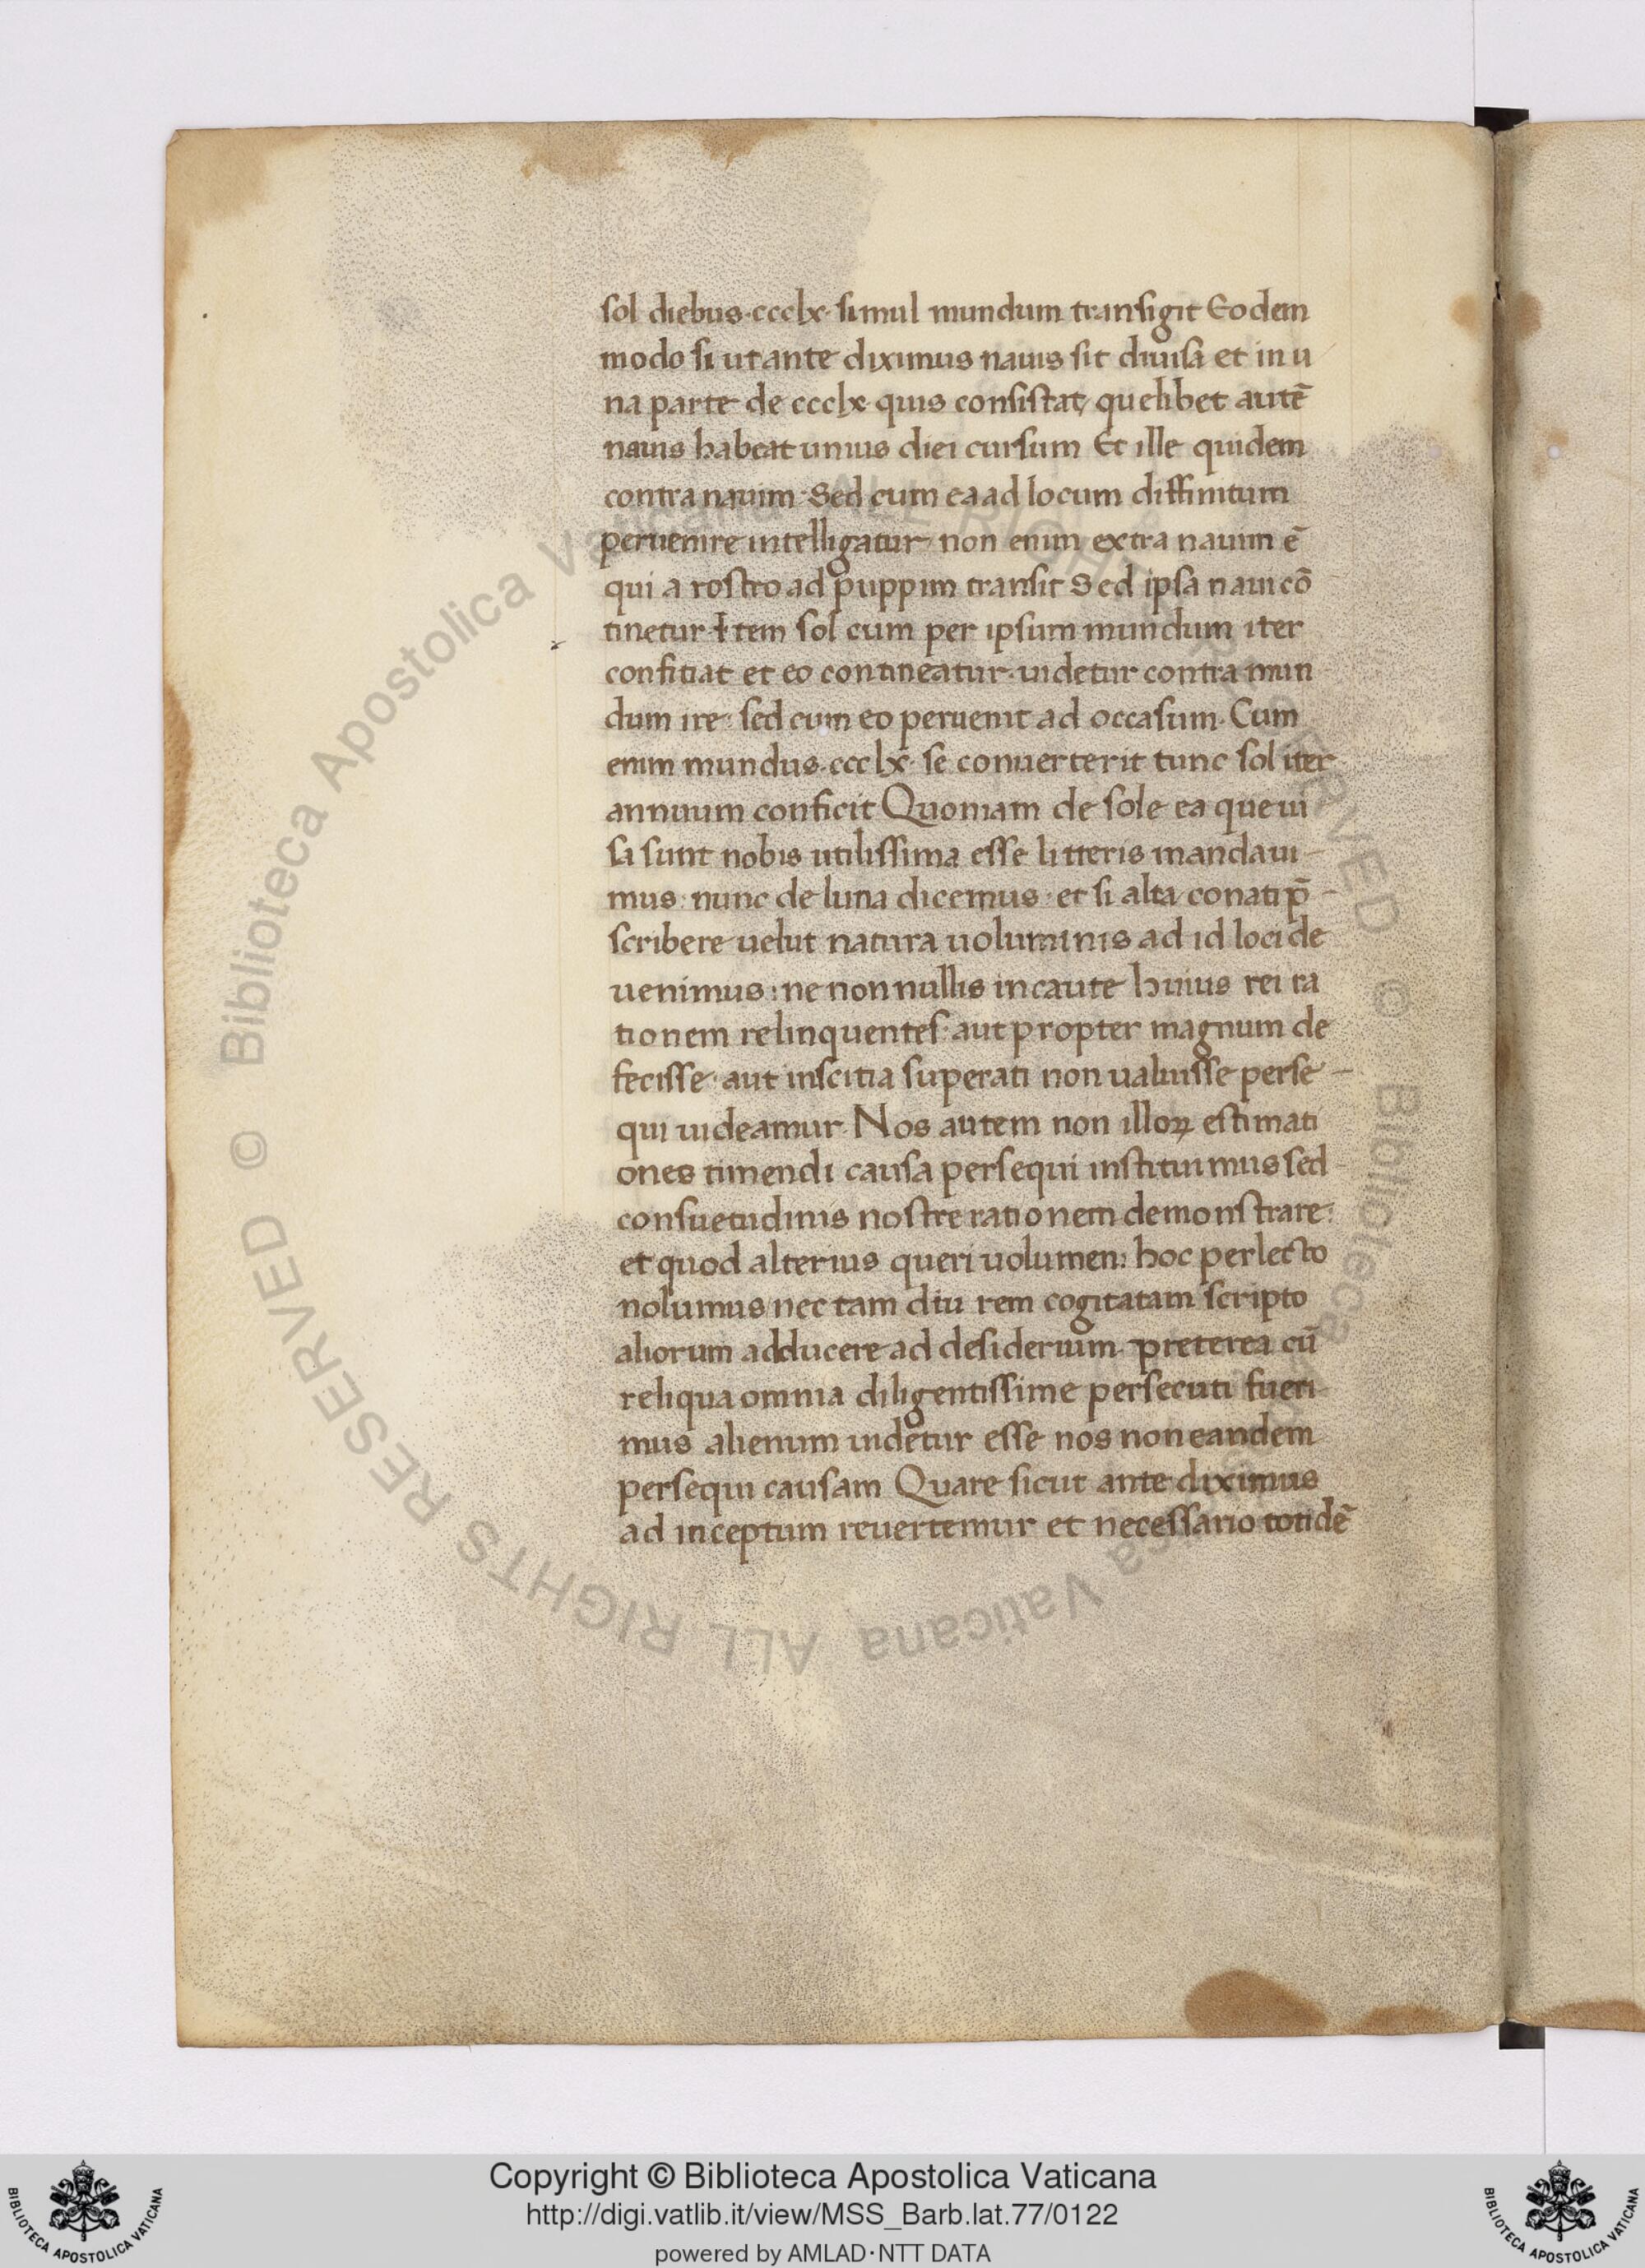 sol diebus·ccclx· simul mundum transigit Eodem
modo si ut ante diximus nauis sit diuisa et in u
na parte de ccclx quis consistat, quelibet autē
nauis habeat unius diei cursum Et ille quidem
contra nauim· Sed cum ea ad locum diffinitum
peruenire intelligatur· non enim extra nauim ē
qui a rostro ad puppim transit Sed ipsa naui cō
tinetur· Item sol cum per ipsum mundum iter
confitiat et eo contineatur· uidetur contra mun
dum ire: sed cum eo peruenit ad occasum· Cum
enim mundus·ccclx· se conuerterit tunc sol iter
annuum conficit Quoniam de sole ea que ui
sa sunt nobis utilissima esse litteris mandaui-
mus: nunc de luna dicemus· et si alta conati p̄-
scribere uelut natura uoluminis ad id loci de
uenimus: ne non nullis incaute huius rei ra
tionem relinquentes· aut propter magnum de
fecisse· aut inscitia superati non ualuisse perse-
qui uideamur· Nos autem non illoꝝ estimati
ones timendi causa persequi instituimus sed
consuetudinis nostre rationem demonstrare:
et quod alterius queri uolumen: hoc perlecto
nolumus/ nec tam diu rem cogitatam scripto
aliorum adducere ad desiderium· preterea cū
reliqua omnia diligentissime persecuti fueri-
mus alienum uidetur esse nos non eandem
persequi causam Quare sicut ante diximus
ad inceptum reuertemur et necessario totidē
© Biblioteca Apostolica Vaticana ALL RIGHTS RESERVED © Biblioteca Apostolica Vaticana ALL RIGHTS RESERVED
Copyright © Biblioteca Apostolica Vaticana
http://digi.vatlib.it/view/MSS_Barb.lat.77/0122
powered by AMLAD·NTT DATA
BIBLIOTECA APOSTOLICA VATICANA
BIBLIOTECA APOSTOLICA VATICANA